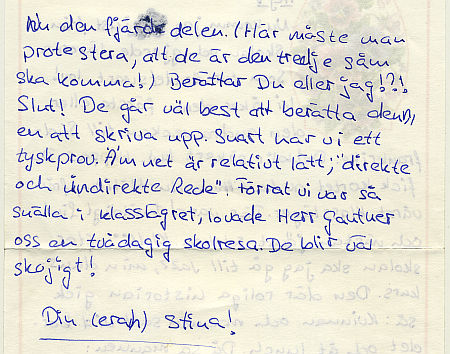 Nu den fjärde delen. (Här måste man
protestera, att de är den tredje såm
ska komma!) Berättar Du eller jag!?!,
Slut! De går väl best att berätta den,
en att skriva upp. Snart har vi ett
tyskprov. Ämnet är relativt lätt; "direkte
och indirekte Rede". Förrat vi var så
snälla i klasslägret, lovade Herr Gautner
oss en tvådagig skolresa. De blir väl
skojigt!
Din (eran) Stina!